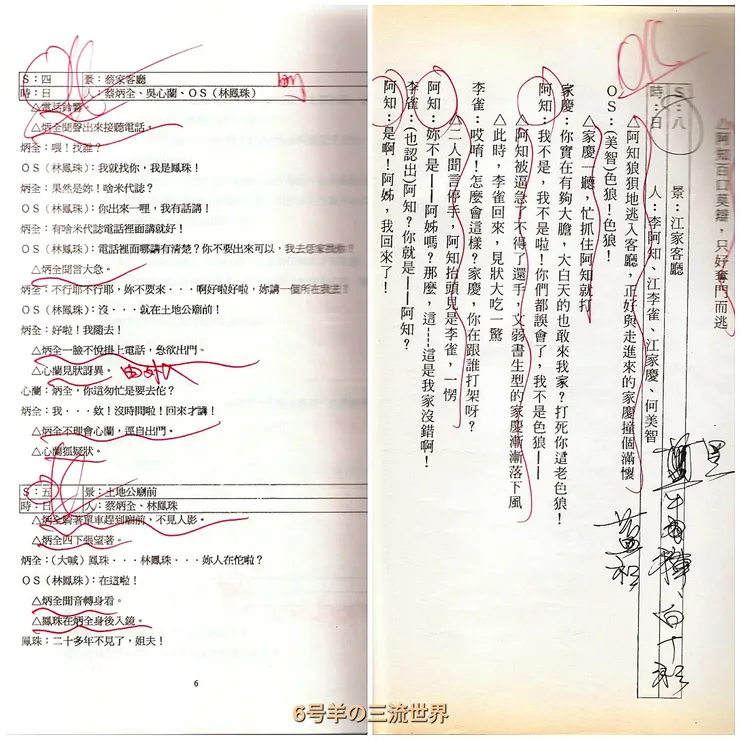 S：四 景：蔡家客廳
時：日 人：蔡炳全、吳心蘭、OS（林鳳珠）
△電話鈴響。
△炳全聞聲出來接聽電話。
炳全：喂！找誰？
OS（林鳳珠）：我就找你，我是鳳珠！
炳全：果然是妳！啥米代誌？
OS（林鳳珠）：你出來一哩，我有話講！
炳全：有啥米代誌電話裡面講就好！
OS（林鳳珠）：電話裡面哪講有清楚？你不要出來可以，我去您家找你！
△炳全聞言大急。
炳全：不行耶不行耶，妳不要來‧‧‧啊好啦好啦，妳講一個所在我去！
OS（林鳳珠）：沒‧‧‧就在土地公廟前！
炳全：好啦！我隨去！
△炳全一臉不悅掛上電話，急欲出門。
△心蘭見狀訝異。
心蘭：炳全，你這匆忙是要去佗？
炳全：我‧‧‧欸！沒時間啦！回來才講！
△炳全不理會心蘭，逕自出門。
△心蘭狐疑狀。
S：五 景：土地公廟前
時：日 人：蔡炳全、林鳳珠
△炳全騎著單車趕到廟前，不見人影。
△炳全四下張望著。
炳全：（大喊）鳳珠‧‧‧林鳳珠‧‧‧妳人在佗啦？
OS（林鳳珠）：在這啦！
△炳全聞音轉身看。
△鳳珠在炳全身後入鏡。
鳳珠：二十多年不見了，姐夫！
6
△阿知百口莫辯，只好奪門而逃
S：八 景：江家客廳
時：日 人：李阿知、江李雀、江家慶、何美智
△阿知狼狽地逃入客廳，正好與走進來的家慶撞個滿懷
OS：（美智）色狼！色狼！
△家慶一聽，忙抓住阿知就打
家慶：你實在有夠大膽，大白天的也敢來我家？打死你這老色狼！
阿知：我不是，我不是啦！你們都誤會了，我不是色狼——
△阿知被逼急了不得了還手，文弱書生型的家慶漸漸落下風
△此時，李雀回來，見狀大吃一驚
李雀：哎唷！怎麼會這樣？家慶，你在跟誰打架呀？
△二人聞言停手，阿知抬頭見是李雀，一愣
阿知：妳不是——阿姊嗎？那麼，這┅┅這是我家沒錯啊！
李雀：（也認出）阿知？你就是——阿知？
阿知：是啊！阿姊，我回來了！
6号羊の三流世界